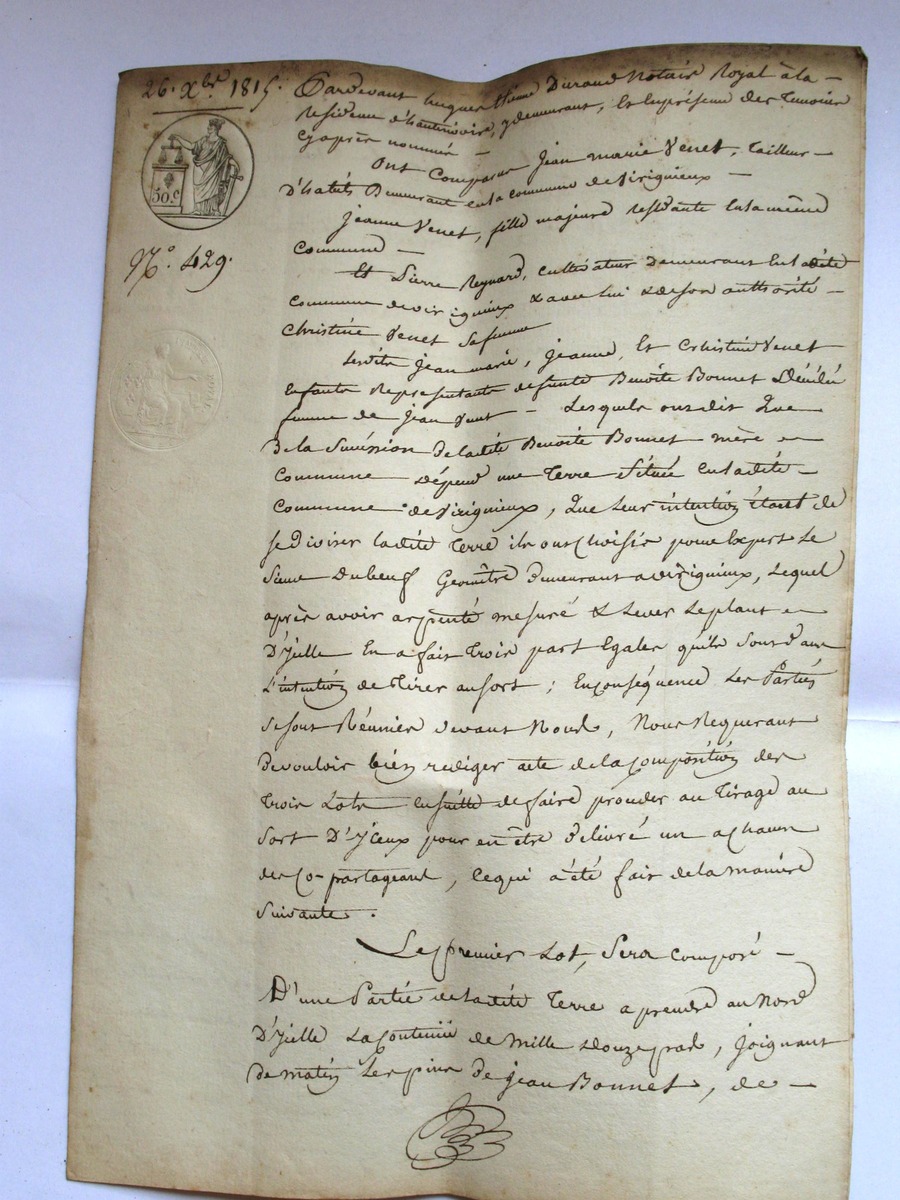 26. Xbre 1815.
Pardevant hugues Etienne Durand Notaire Royal à la
residence d'hauterivoire, y demeurant, Et En présence des temoins
Cyaprès nommés
Ont Comparu Jean marie Venet, tailleur
D'habits Demeurant en la commune de Viriguieux
Jeanne Venet, fille majeure residante En la même
Commune
50 c
No. 429.
Et Pierre Reynard, cultivateur demeurant En ladite
Commune de viriguieux & avec lui & de son authorité
Christine Venet sa femme
Lesdits Jean marie, Jeanne, Et Crhistine Venet
Enfants Representants defunte Benoite Bonnet Décédée
femme de Jean Venet - Lesquels ont dit Que
De la Succession De ladite Benoite Bonnet mère
Commune dépend une Terre Située en ladite
Commune de Viriguieux, Que Leur intention étant de
se diviser ladite Terre ils ont Choisis pour Expert Le
Sieur Dubeuf Geomètre Demeurant a viriguieux, Lequel
après avoir arpenté mesuré & Lever Le plant
D'Yselle En a fait Trois part Egales qu'ils sont dans
L'intention de Tirer au sort ; En conséquence Les Parties
se sont Réunies devant Nous, Nous Requerant
De vouloir bien rediger acte de la Composition des
Trois Lots ensuite de faire proceder au Tirage au
Sort D'Yceux pour en être Delivré un a chacun
des Co-partageant, ce qui a été fait de la manière
suivante.
Le premier Lot, Sera composé
D'une Partie de ladite Terre a prendre au Nord
D'Yselle La Contenue de Mille Douze pas, joignant
De matin Les pins de Jean Bonnet, de